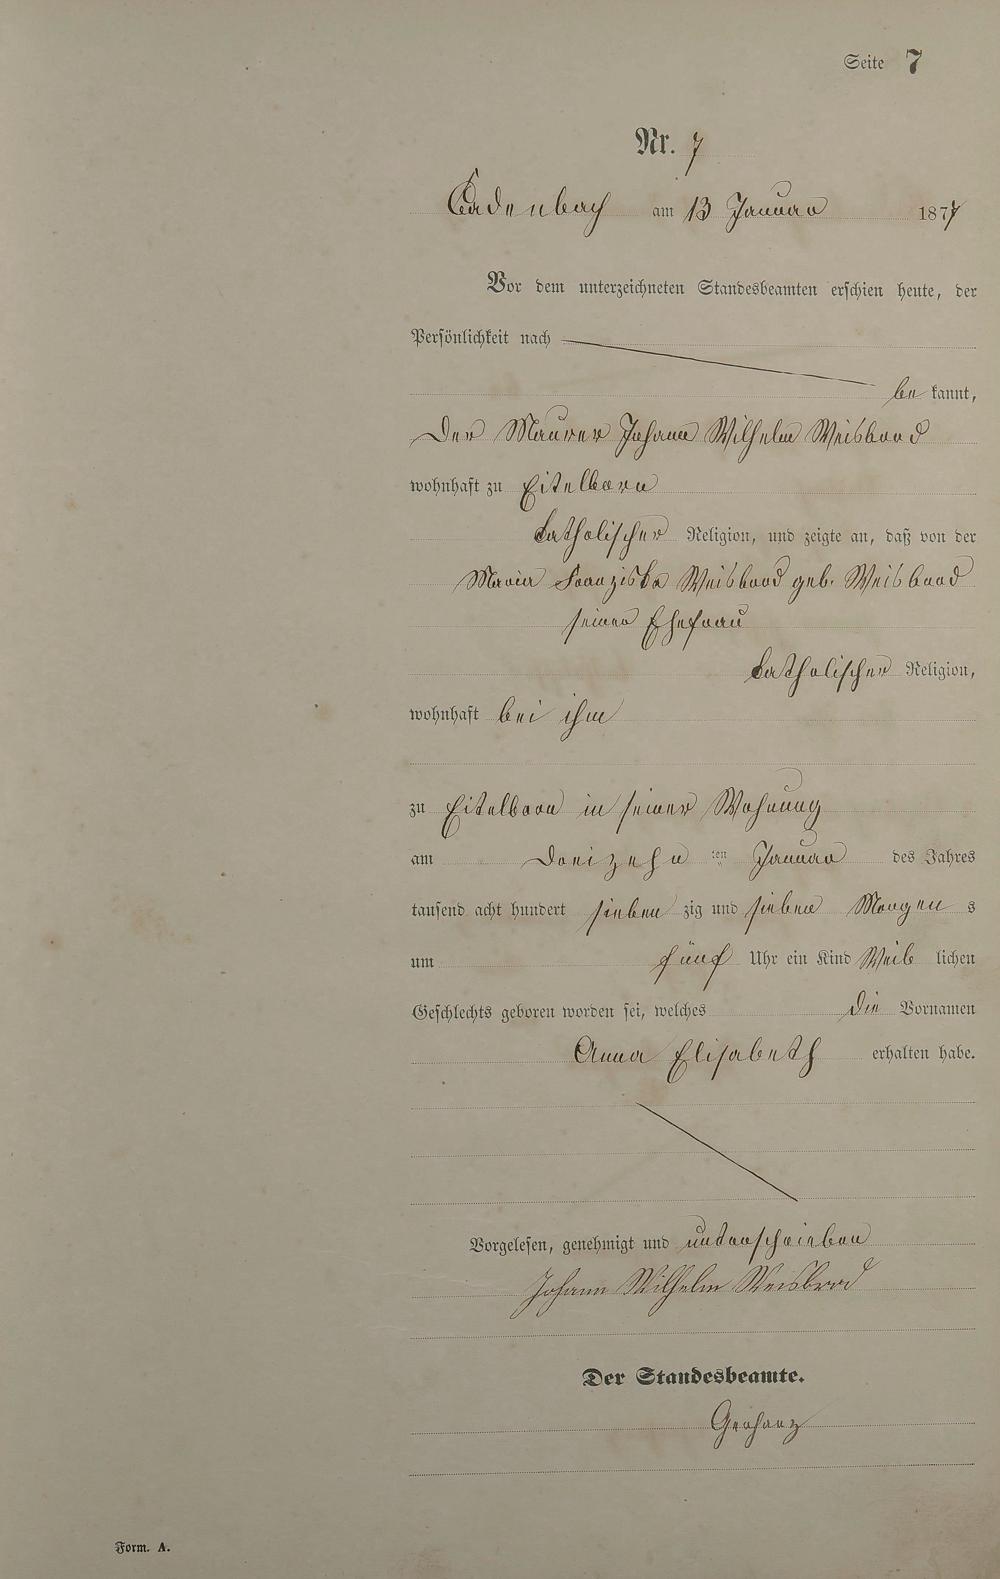 Seite 7
Nr. 7
Cadenbach am 13 Januar 1877
Vor dem unterzeichneten Standesbeamten erschien heute, der
Persönlichkeit nach
bekannt,
der Maurer Johann Wilhelm Weisbrod
wohnhaft zu Eitelborn
katholischer Religion, und zeigte an, daß von der
Maria Franziska Weisbrod geb. Weisbrod
seiner Ehefrau
katholischer Religion,
wohnhaft bei ihm
zu Eitelborn in seiner Wohnung
am dreizehn ten Januar des Jahres
tausend acht hundert sieben zig und sieben Morgens
um fünf Uhr ein Kind Weiblichen
Geschlechts geboren worden sei, welches die Vornamen
Anna Elisabeth erhalten habe.
Vorgelesen, genehmigt und unterschrieben
Johann Wilhelm Weisbrod
Der Standesbeamte.
Gerharz
Form. A.